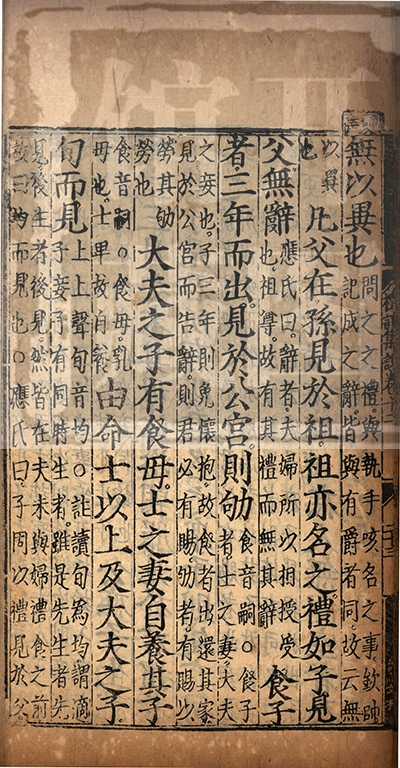 無以異也問之之禮與執手咳名之事欽帥
記成之辭皆與有爵者同故云無
以異
也凡父在孫見於祖祖亦名之禮如子見
父無辭應氏曰辭者夫婦所以相授受
也祖尊故有其禮而無其辭食子
者三年而出見於公宮則劬食音嗣○食子
者士之妻大夫
之妾也子三年則免懷抱故食者出還其家
見於公宮而告辭則君必有賜劬者有賜以
勞其劬
勞也大夫之子有食母士之妻自養其子
食音嗣○食母乳
母也士卑故自養由命士以上及大夫之子
旬而見上上聲旬音均○註讀旬爲均謂適
子妾子有同時生者雖是先生者先
見後生者後見然皆在夫未與婦禮食之前
故曰均而見也○應氏曰子同以禮見於父